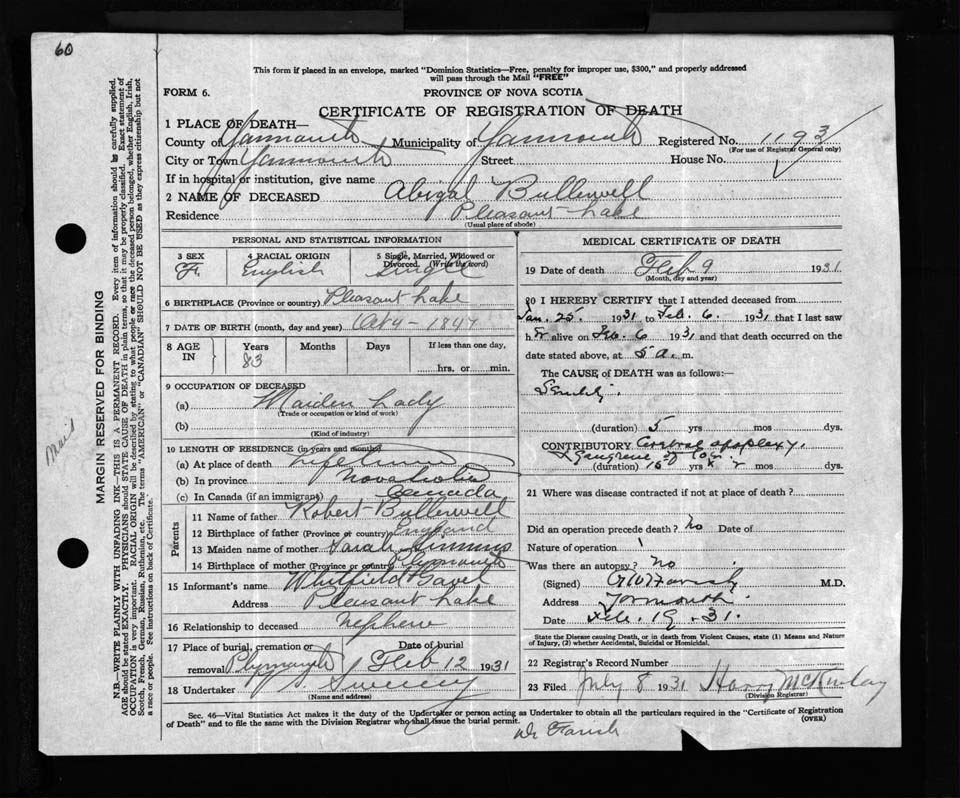 60
This form if placed in an envelope, marked "Dominion Statistics—Free, penalty for improper use, $300," and properly addressed
will pass through the Mail "FREE"
FORM 6.
PROVINCE OF NOVA SCOTIA
CERTIFICATE OF REGISTRATION OF DEATH
1 PLACE OF DEATH—
County of Yarmouth Municipality of Yarmouth Registered No. 1193
(For use of Registrar General only)
City or Town Yarmouth Street House No.
If in hospital or institution, give name
2 NAME OF DECEASED Abigal Bullerwell
Residence Pleasant Lake
(Usual place of abode)
PERSONAL AND STATISTICAL INFORMATION
3 SEX 4 RACIAL ORIGIN 5 Single, Married, Widowed or
Divorced. (Write the word)
F. English Single
6 BIRTHPLACE (Province or country) Pleasant Lake
7 DATE OF BIRTH (month, day and year) Oct 4 - 1847
8 AGE IN Years Months Days If less than one day,
83 hrs. or min.
9 OCCUPATION OF DECEASED
(a) Maiden Lady
(Trade or occupation or kind of work)
(b)
(Kind of industry)
10 LENGTH OF RESIDENCE (in years and months)
(a) At place of death Lifetime
(b) In province Nova Scotia
(c) In Canada (if an immigrant) Canada
Parents
11 Name of father Robert Bullerwell
12 Birthplace of father (Province or country) England
13 Maiden name of mother Sarah
14 Birthplace of mother (Province or country)
15 Informant's name Whitfield Gavel
Address Pleasant Lake
16 Relationship to deceased Nephew
17 Place of burial, cremation or Date of burial
removal Plymouth Feb 12 1931
18 Undertaker Sweeny
(Name and address)
MEDICAL CERTIFICATE OF DEATH
19 Date of death Feb 9 1931
(Month, day and year)
20 I HEREBY CERTIFY that I attended deceased from
Jan. 25. 1931 to Feb. 6. 1931 that I last saw
her alive on Feb. 6 1931 and that death occurred on the
date stated above, at 5 a. m.
The CAUSE of DEATH was as follows:—
Senility.
(duration) 5 yrs mos dys.
CONTRIBUTORY Cerebral apoplexy.
Gangrene of
(duration) yrs mos dys.
21 Where was disease contracted if not at place of death?
Did an operation precede death? No Date of
Nature of operation
Was there an autopsy? No
(Signed) Farish M.D.
Address Yarmouth
Date Feb. 19 - 31.
State the Disease causing Death, or in death from Violent Causes, state (1) Means and Nature
of Injury, (2) whether Accidental, Suicidal or Homicidal.
22 Registrar's Record Number
23 Filed July 8 1931 Harry McKinlay
(Division Registrar)
Sec. 46—Vital Statistics Act makes it the duty of the Undertaker or person acting as Undertaker to obtain all the particulars required in the "Certificate of Registration
of Death" and to file the same with the Division Registrar who shall issue the burial permit. (OVER)
Dr Farish
MARGIN RESERVED FOR BINDING
N.B.—WRITE PLAINLY WITH UNFADING INK—THIS IS A PERMANENT RECORD. Every item of information should be carefully supplied.
AGE should be stated EXACTLY. PHYSICIANS should STATE CAUSE OF DEATH in plain terms, so that it may be properly classified. Exact statement of
OCCUPATION is very important. RACIAL ORIGIN will be described by stating to what people or race the deceased person belonged, whether English, Irish,
Scotch, French, German, Russian, Ruthenian, etc. The terms "AMERICAN" or "CANADIAN" SHOULD NOT BE USED as they express citizenship but not
a race or people. See instructions on back of Certificate.